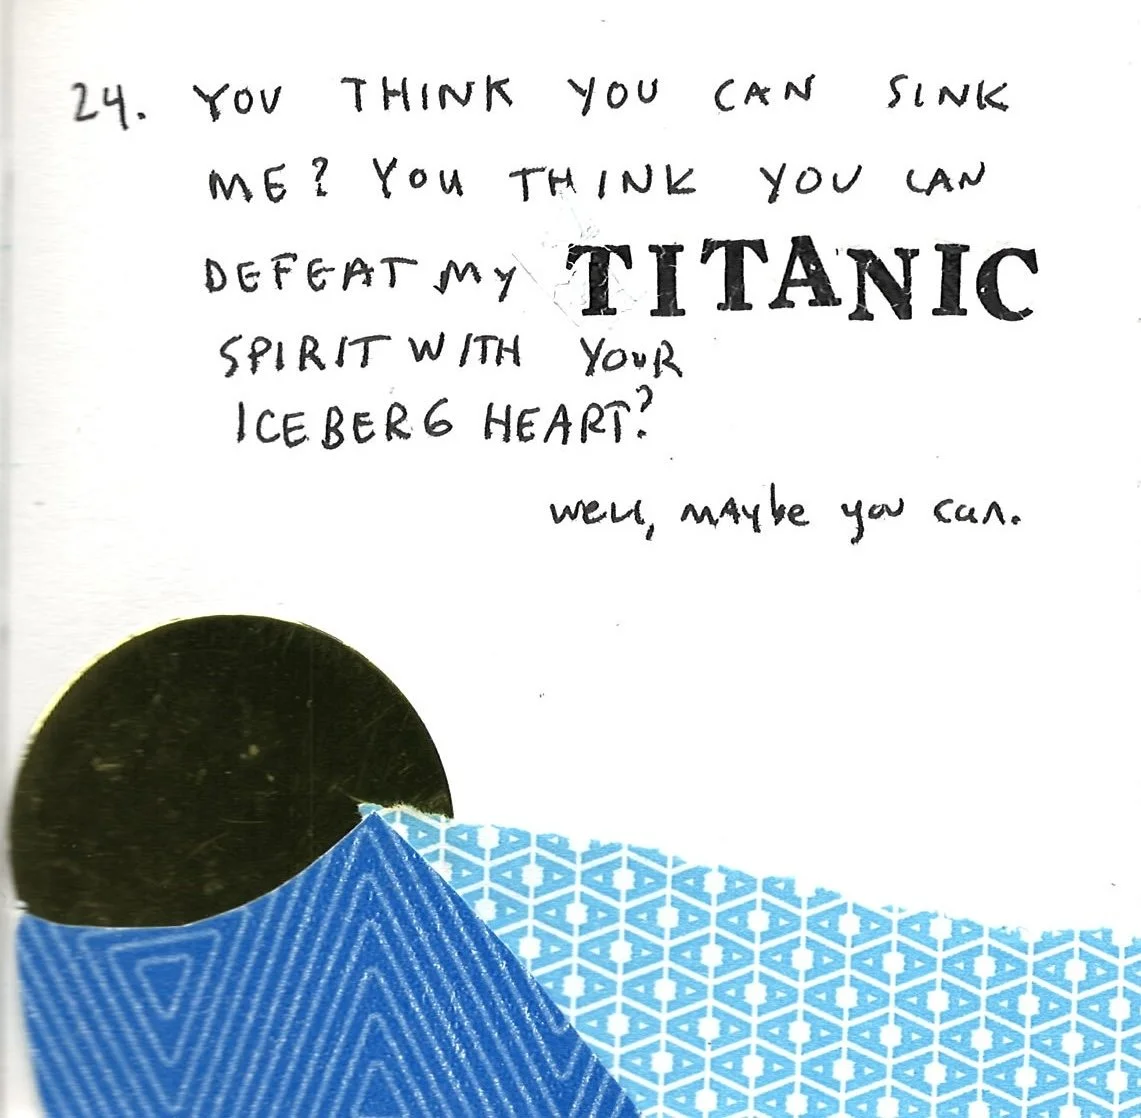 24. YOU THINK YOU CAN SINK
ME? YOU THINK YOU CAN
DEFEAT MY TITANIC
SPIRIT WITH YOUR
ICEBERG HEART?
well, maybe you can.